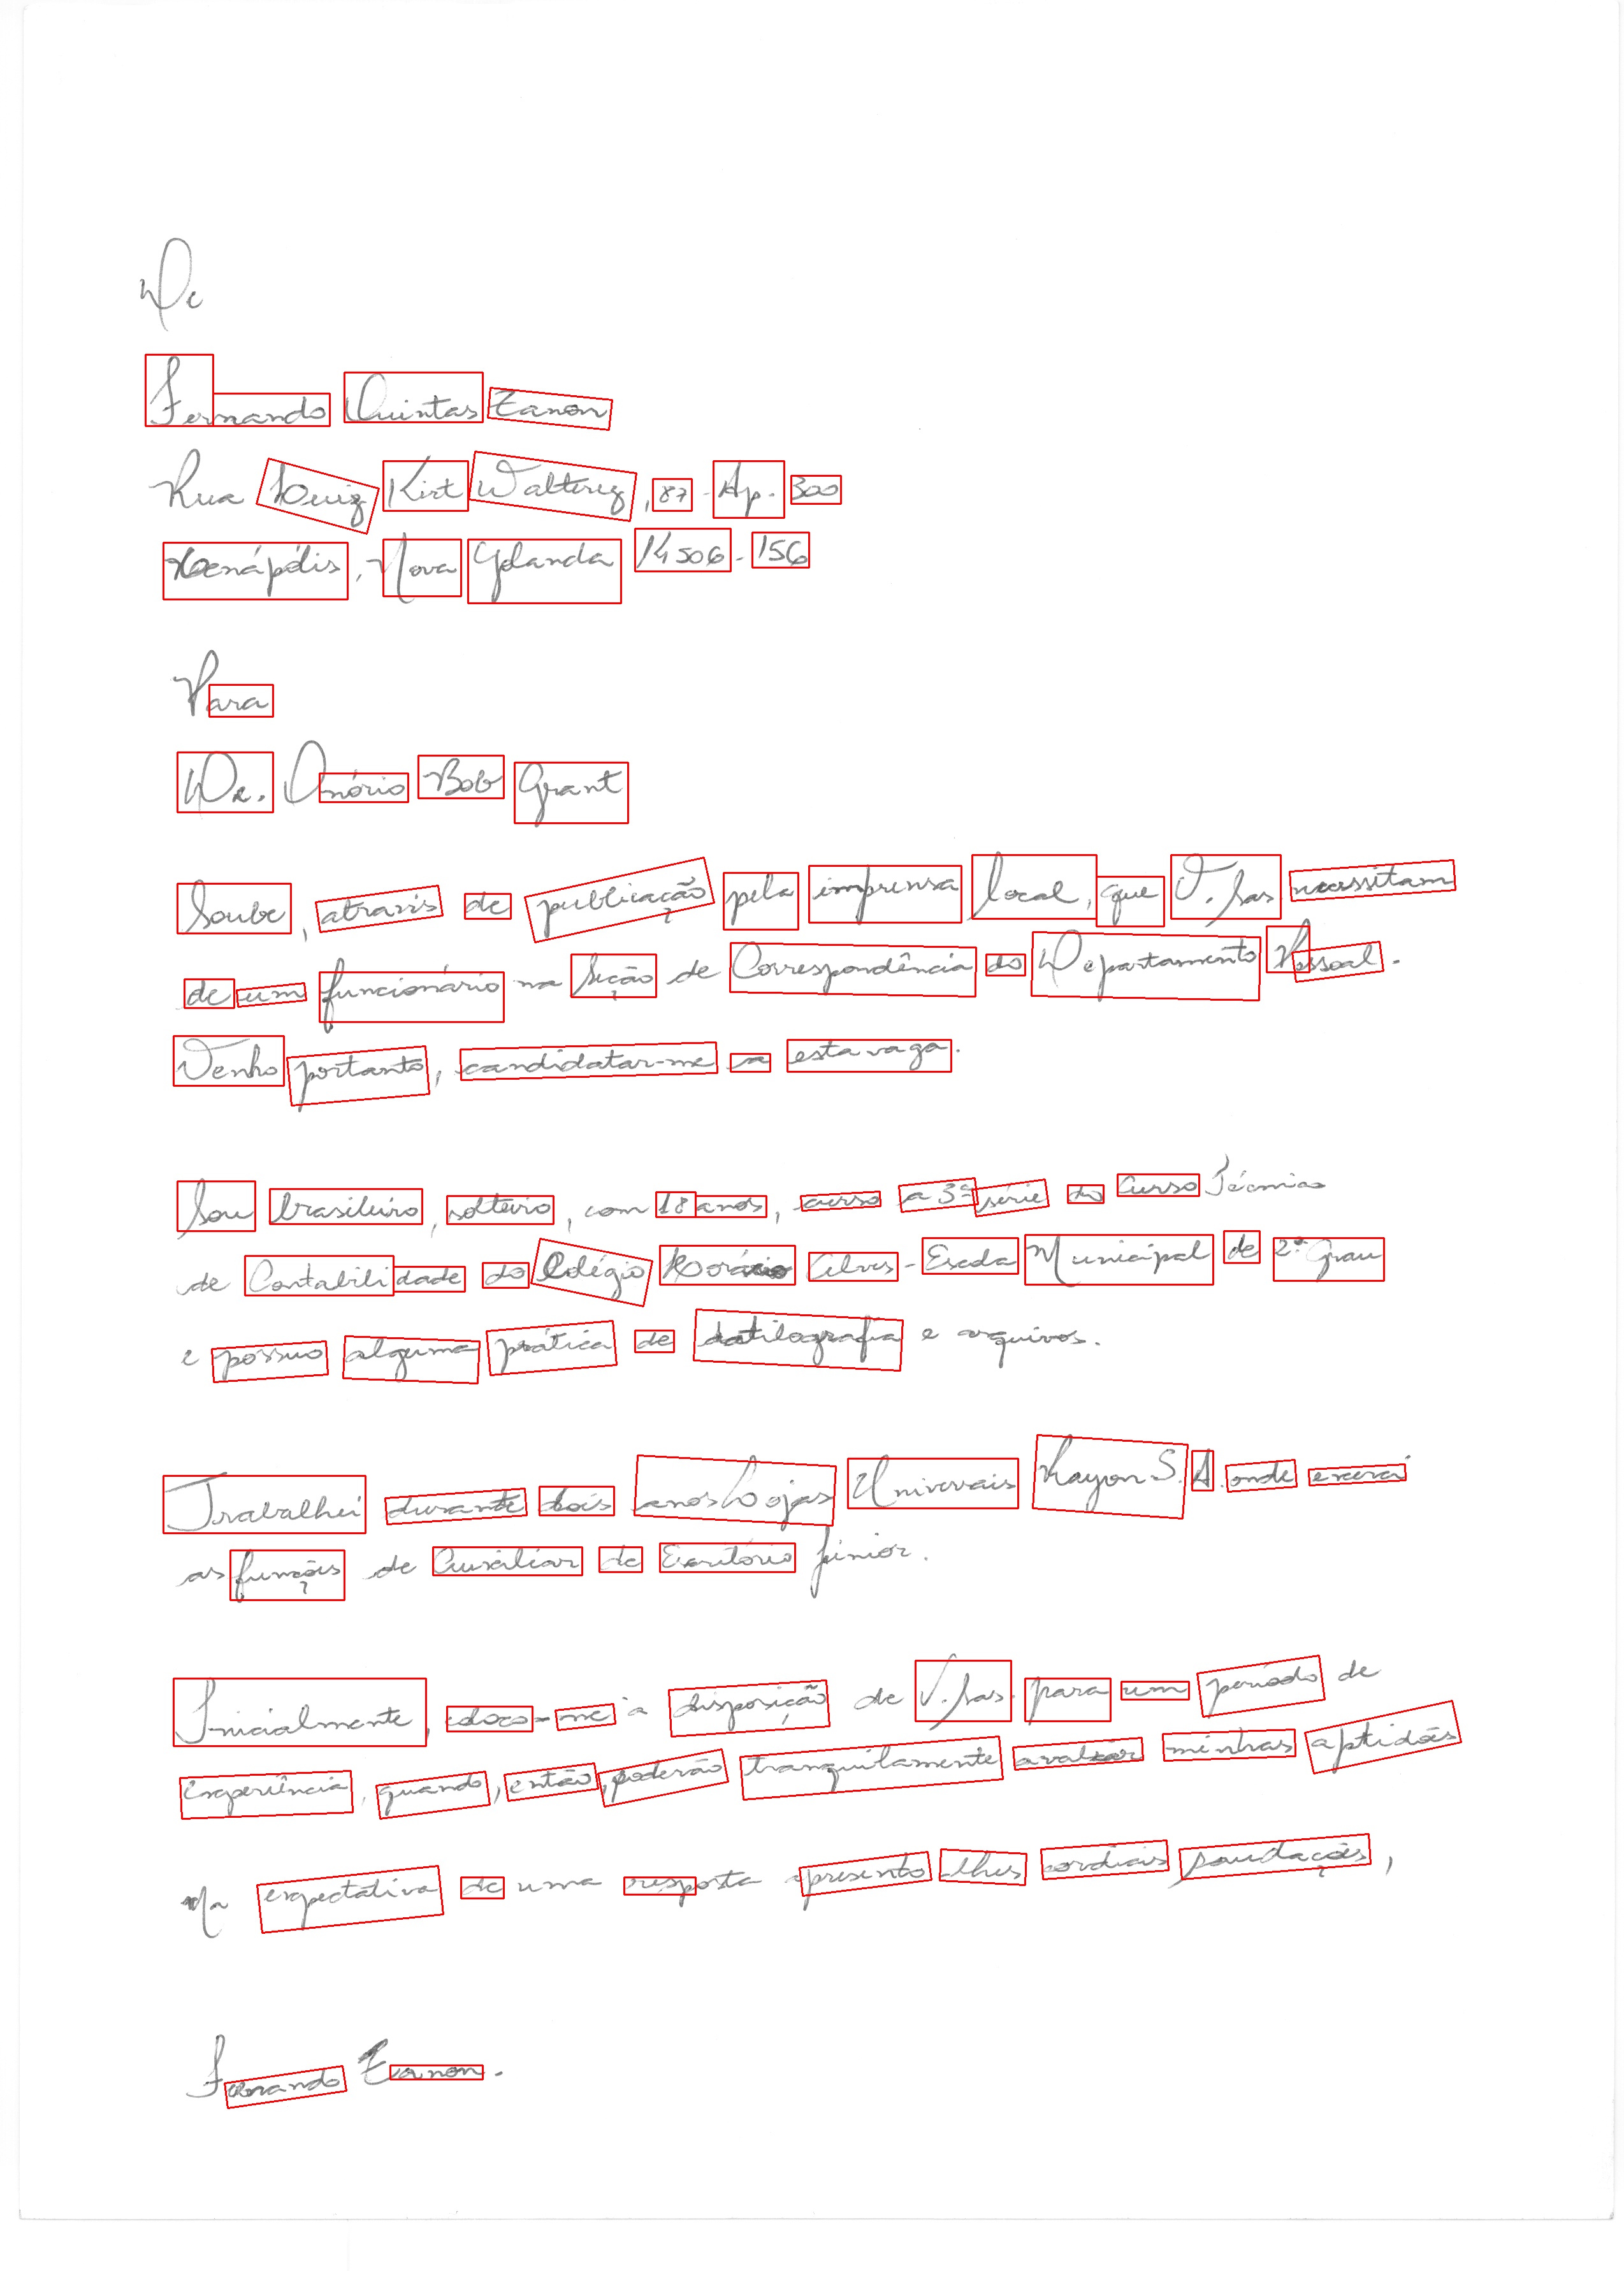 De
Fernando Quintas Zanon
Rua Luiz Kirt Walterez, 87 - Ap. 300
Xenápólis, Nova Yolanda 14506-156
Para
Dr. Onório Bob Grant
Soube, através de publicação pela imprensa local, que V. Sas necessitam
de um funcionário na Seção de Correspondência do Departamento Pessoal.
Venho portanto, candidatar-me a esta vaga.
Sou brasileiro, solteiro, com 18 anos, curso a 3ª série do Curso Técnico
de Contabilidade do Colégio Horácio Alves - Escola Municipal de 2º Grau
e possuo alguma prática de datilografia e arquivos.
Trabalhei durante dois anos Lojas Universais Kayon S. A. onde exerci
as funções de Auxiliar de Escritório Júnior.
Inicialmente, coloco-me à disposição de V. Sas. para um período de
experiência, quando, então, poderão tranquilamente avaliar minhas aptidões
Na expectativa de uma resposta apresento-lhes cordiais saudações,
Fernando Zanon.